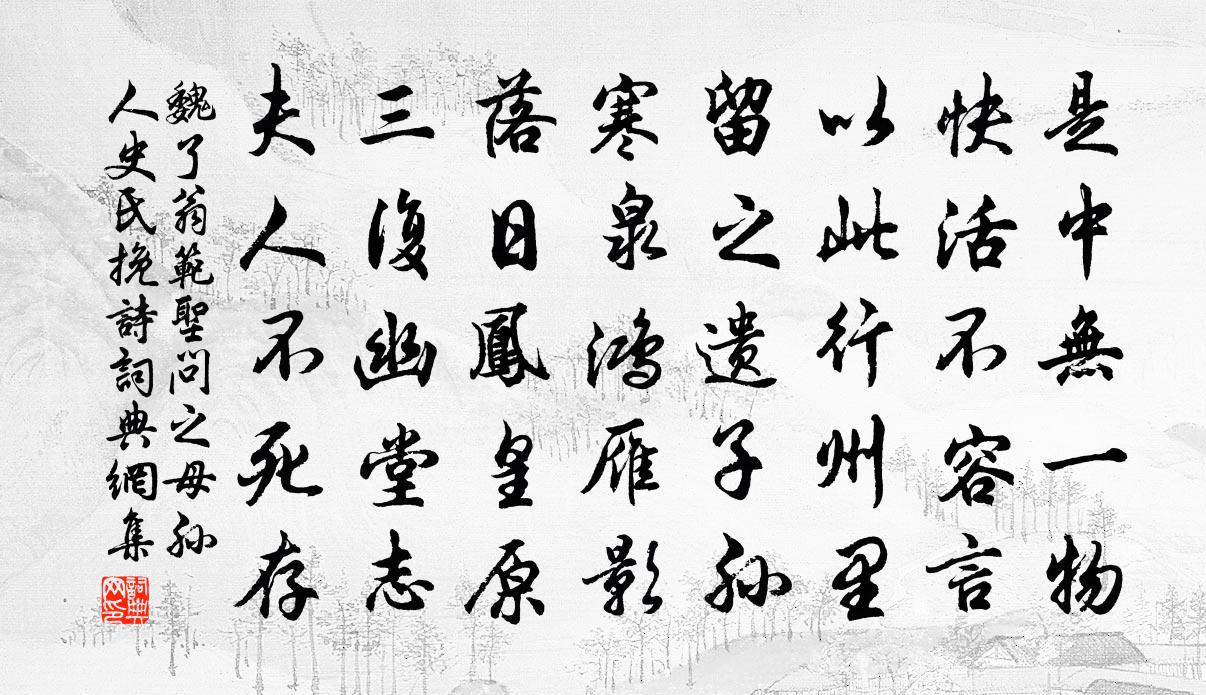 是中無一物
快活不容言
以此行州里
留之遗子孫
寒泉鴻雁影
落日鳳皇原
三復幽堂志
夫人不死存
魏了翁範聖問之母孫
人史氏挽詩詞典網集
詞典網印